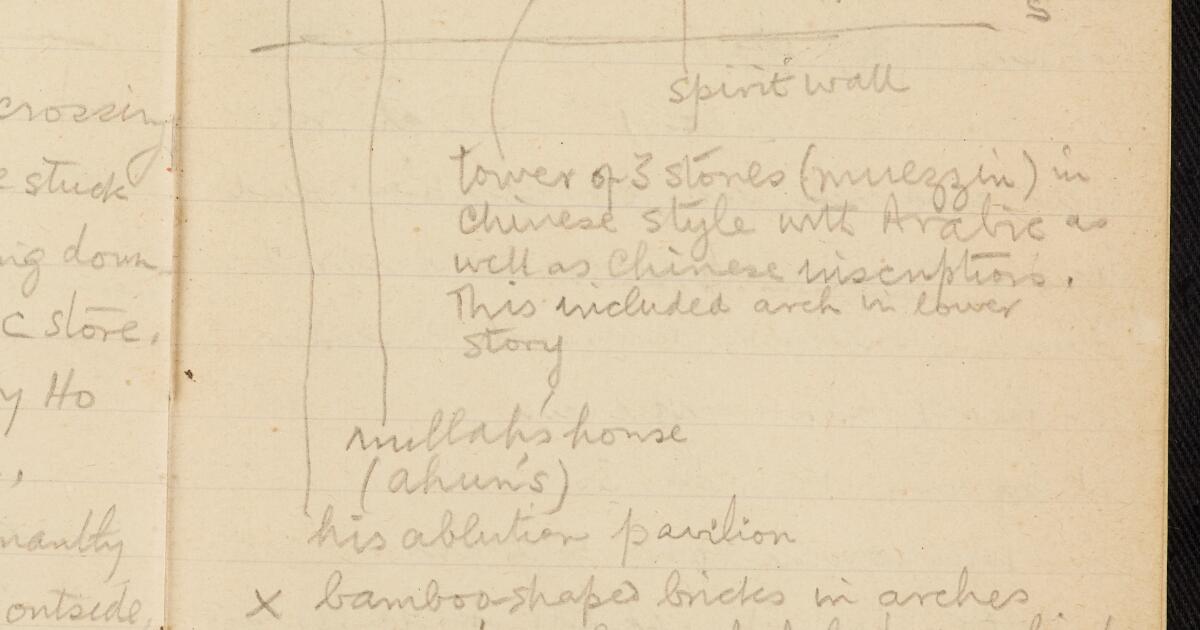 crossing
stuck
down
store,
Ho
outside,
S
spirit wall
tower of 3 stories (muezzin) in
Chinese style with Arabic as
well as Chinese inscriptions.
This included arch in lower
story
mullah's house
(ahun's)
his ablution pavilion
x bamboo-shaped bricks in arches